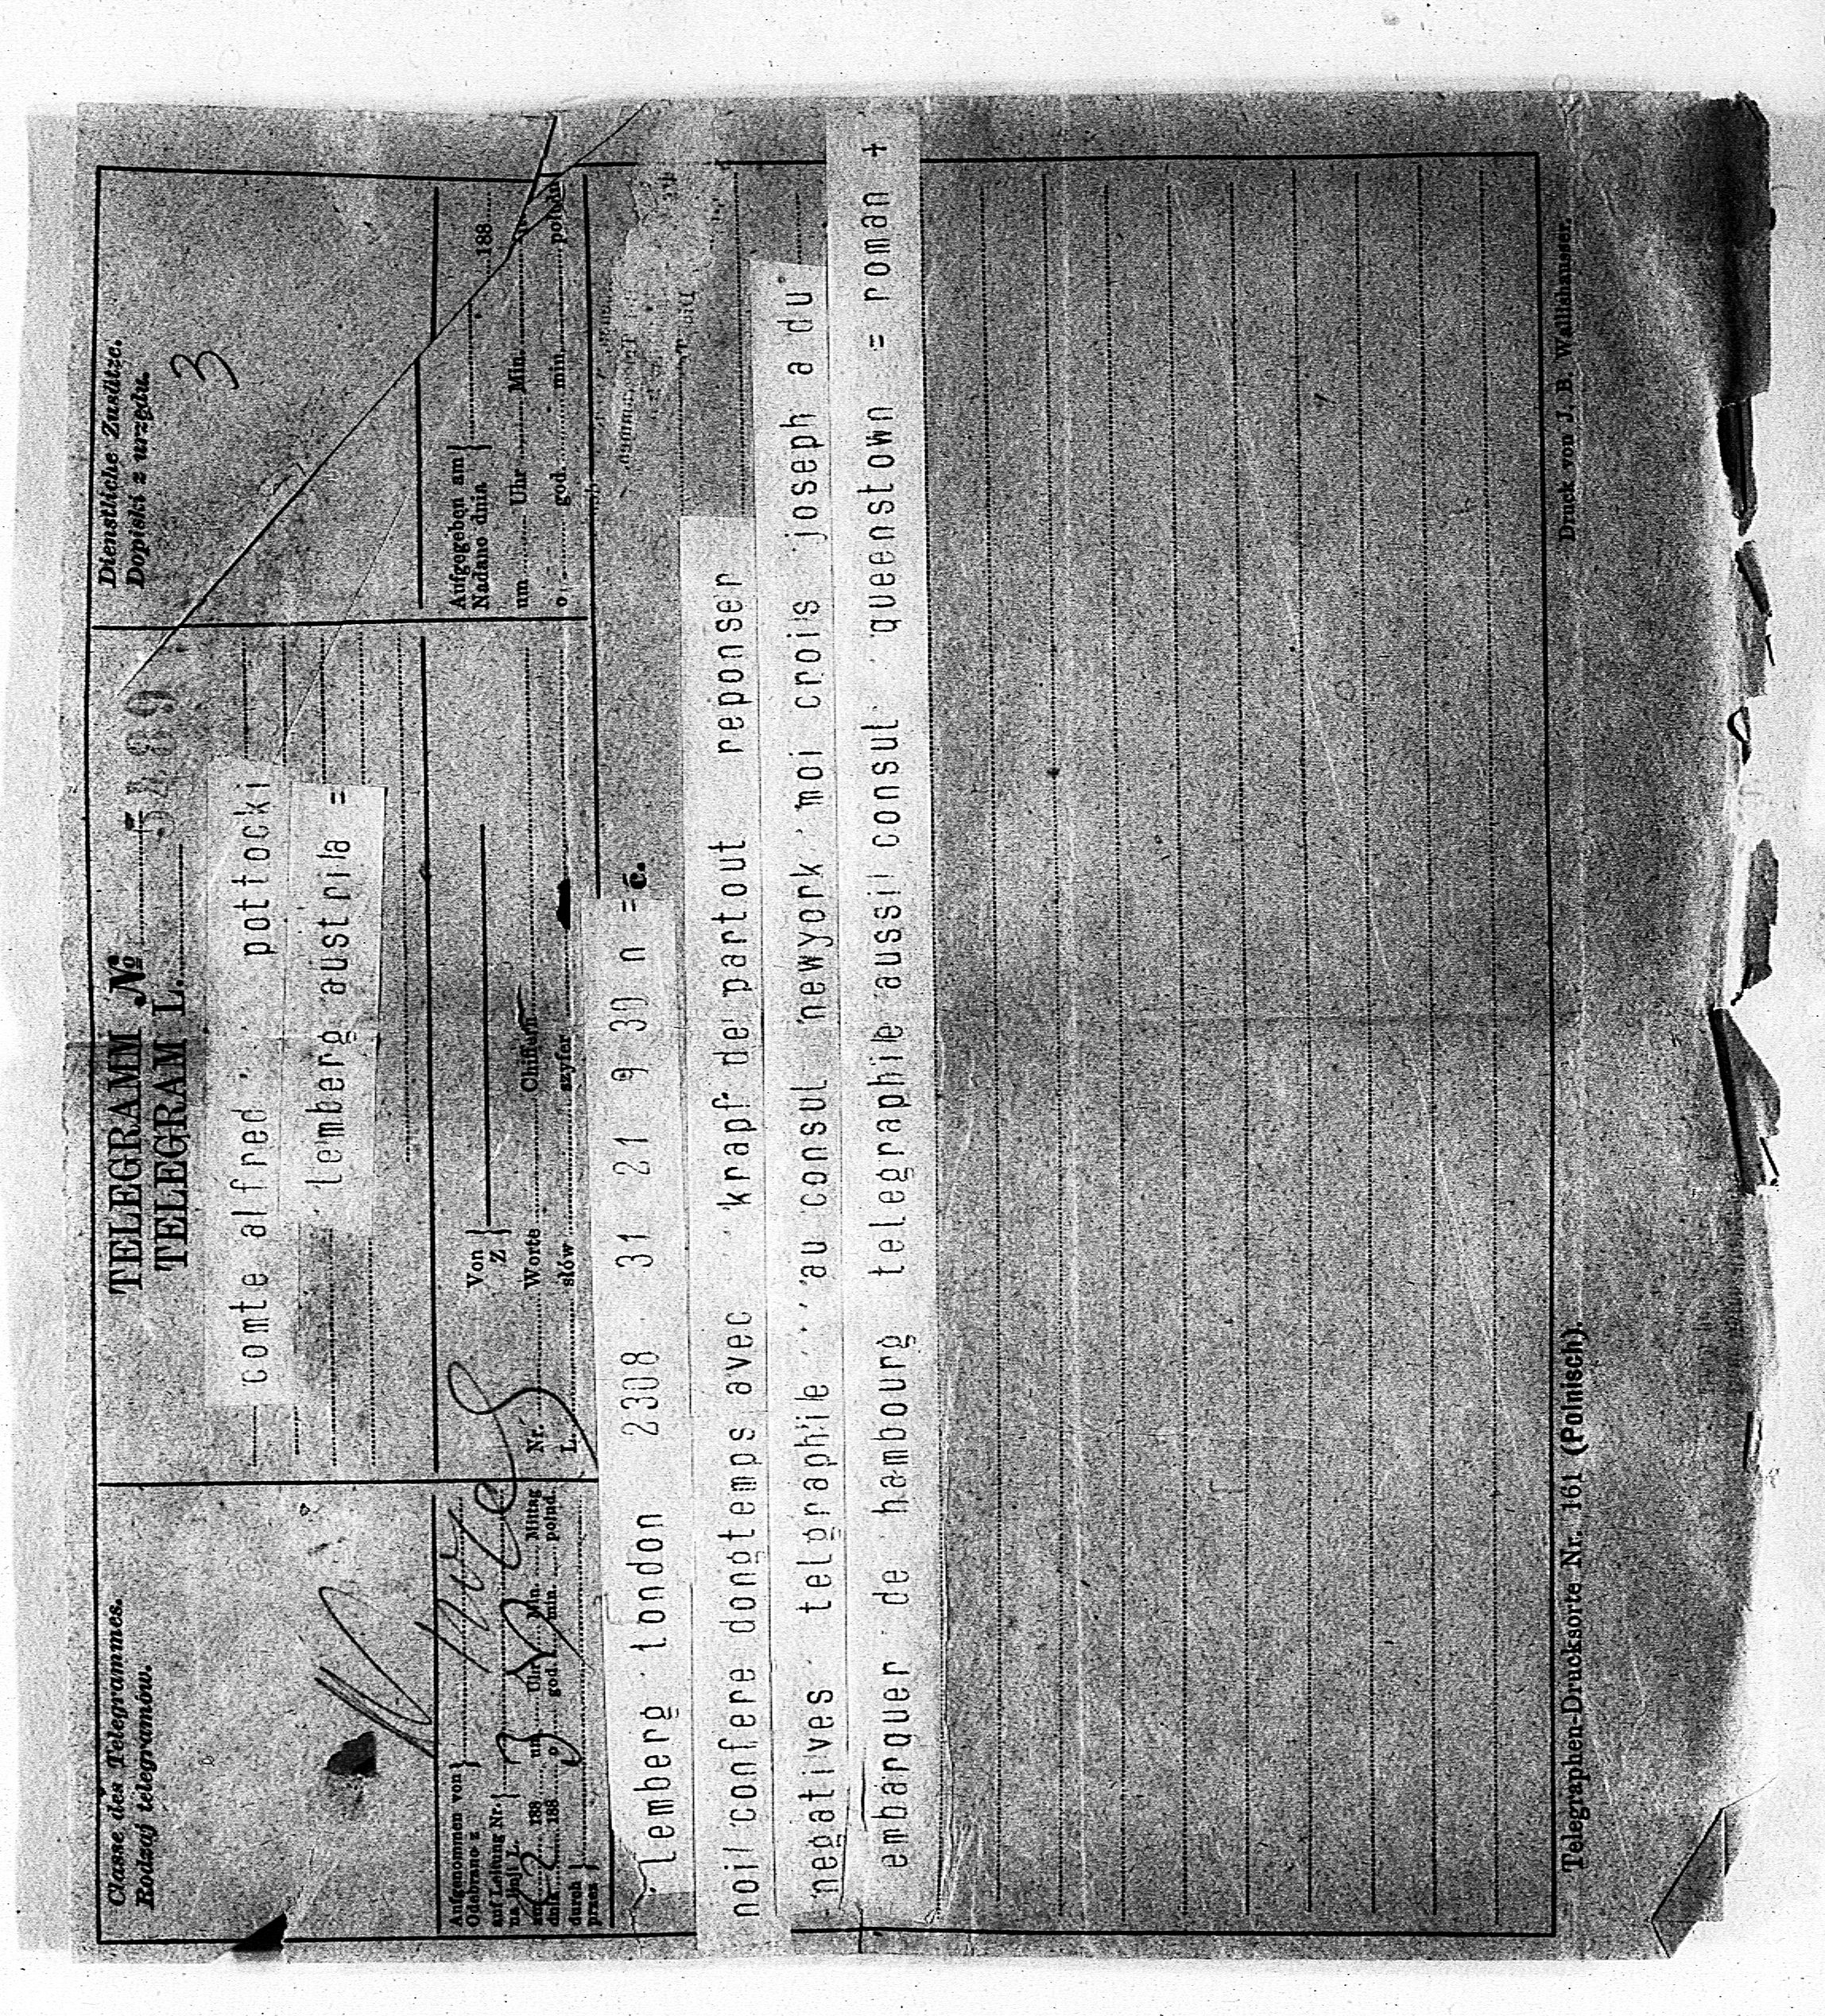 Classe des Telegrammes.
Rodzaj telegramów.
TELEGRAMM No 5489
TELEGRAM L.
comte alfred pottocki
lemberg austria =
Dienstliche Zusätze.
Dopiski z urzędu.
3
Aufgenommen von
Odebrano z
auf Leitung Nr.
na linji L.
am 188
dnia 188
durch
przez
um Uhr Min. Mittag
o god. min. połud.
Von
Z
Nr. Worte Chiffren
L. słów szyfer
Aufgegeben am
Nadano dnia 188
um Uhr Min.
o god. min. połudn
lemberg london 2308 31 21 9 30 n =
noil confere dongtemps avec krapf de partout reponser
negatives telgraphile au consul newyork moi crois joseph a du
embarquer de hambourg telegraphile aussi consul queenstown = roman +
Telegraphen-Drucksorte Nr. 161 (Polnisch).
Druck von J. B. Wallishauser.